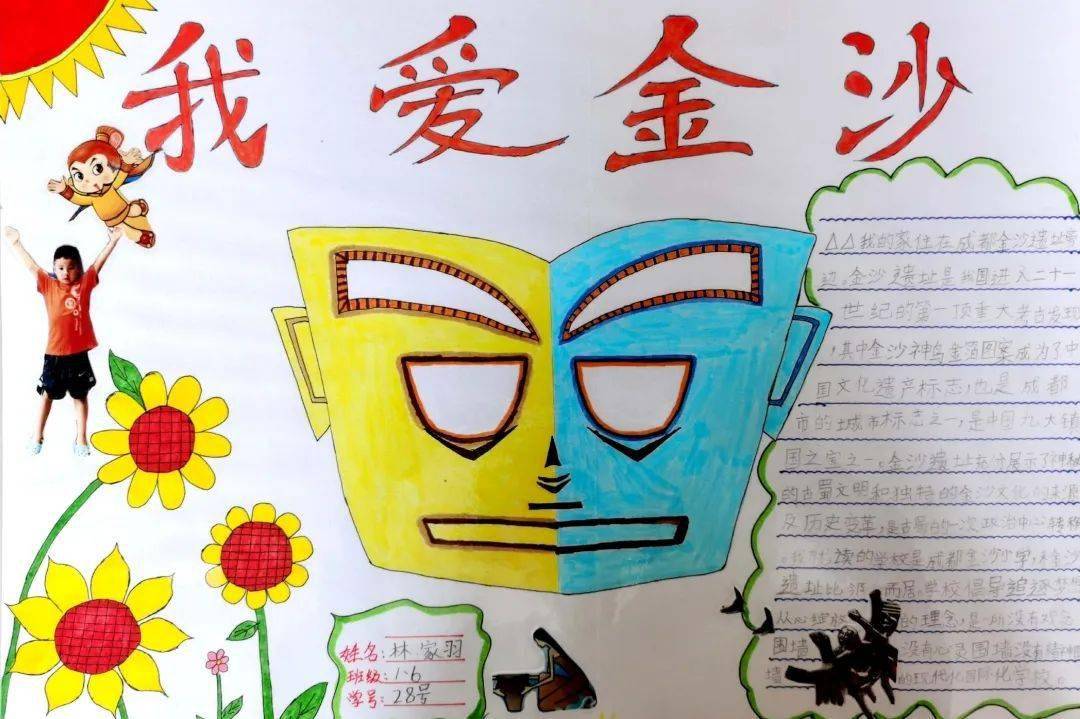 我爱金沙
△△我的家住在成都金沙遗址旁
边,金沙遗址是我国进入二十一
世纪的第一项重大考古发现
,其中金沙神鸟金箔图案成为了中
国文化遗产标志,也是成都
市的城市标志之一,是中国九大镇
国之宝之一。金沙遗址充分展示了神秘
的古蜀文明和独特的金沙文化的来源
及历史变革,是古蜀的一次政治中心转移
。我就读的学校是成都金沙小学,和金沙
遗址比邻而居,学校倡导追逐梦想
从心绽放 的理念,是一所没有观念
围墙 没有心灵围墙没有精神围
墙 的现代化国际化学校。
姓名:林家羽
班级:1·6
学号:28号